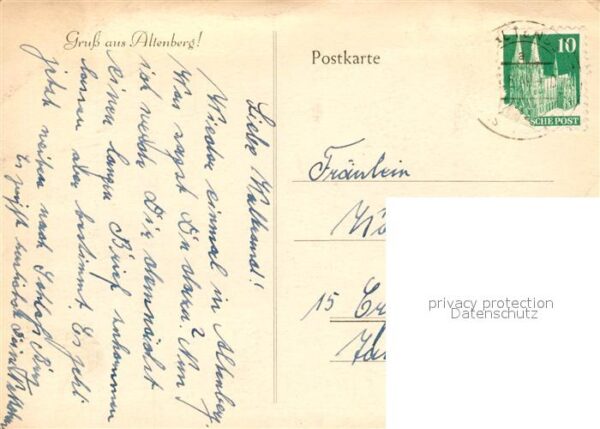 Gruß aus Altenberg!
Liebe Waltraud!
Wieder einmal in Altenberg.
Was sagst Du dazu? Nun
ich werde Dir demnächst
einen langen Brief zukommen
lassen aber bestimmt. Es geht
jetzt weiter nach Schloß Burg
Es grüßt herzlichst Deine
Postkarte
10
SCHE POST
Fräulein
15
privacy protection
Datenschutz